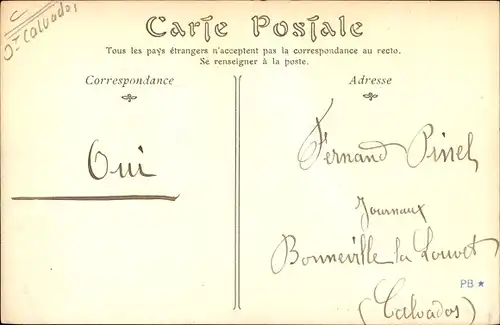 Carte Postale
Tous les pays étrangers n'acceptent pas la correspondance au recto.
Se renseigner à la poste.
Correspondance
Adresse
Oui
Fernand Pinel
Journaux
Bonneville la Louvet
(Calvados)
PB
C
Calvados